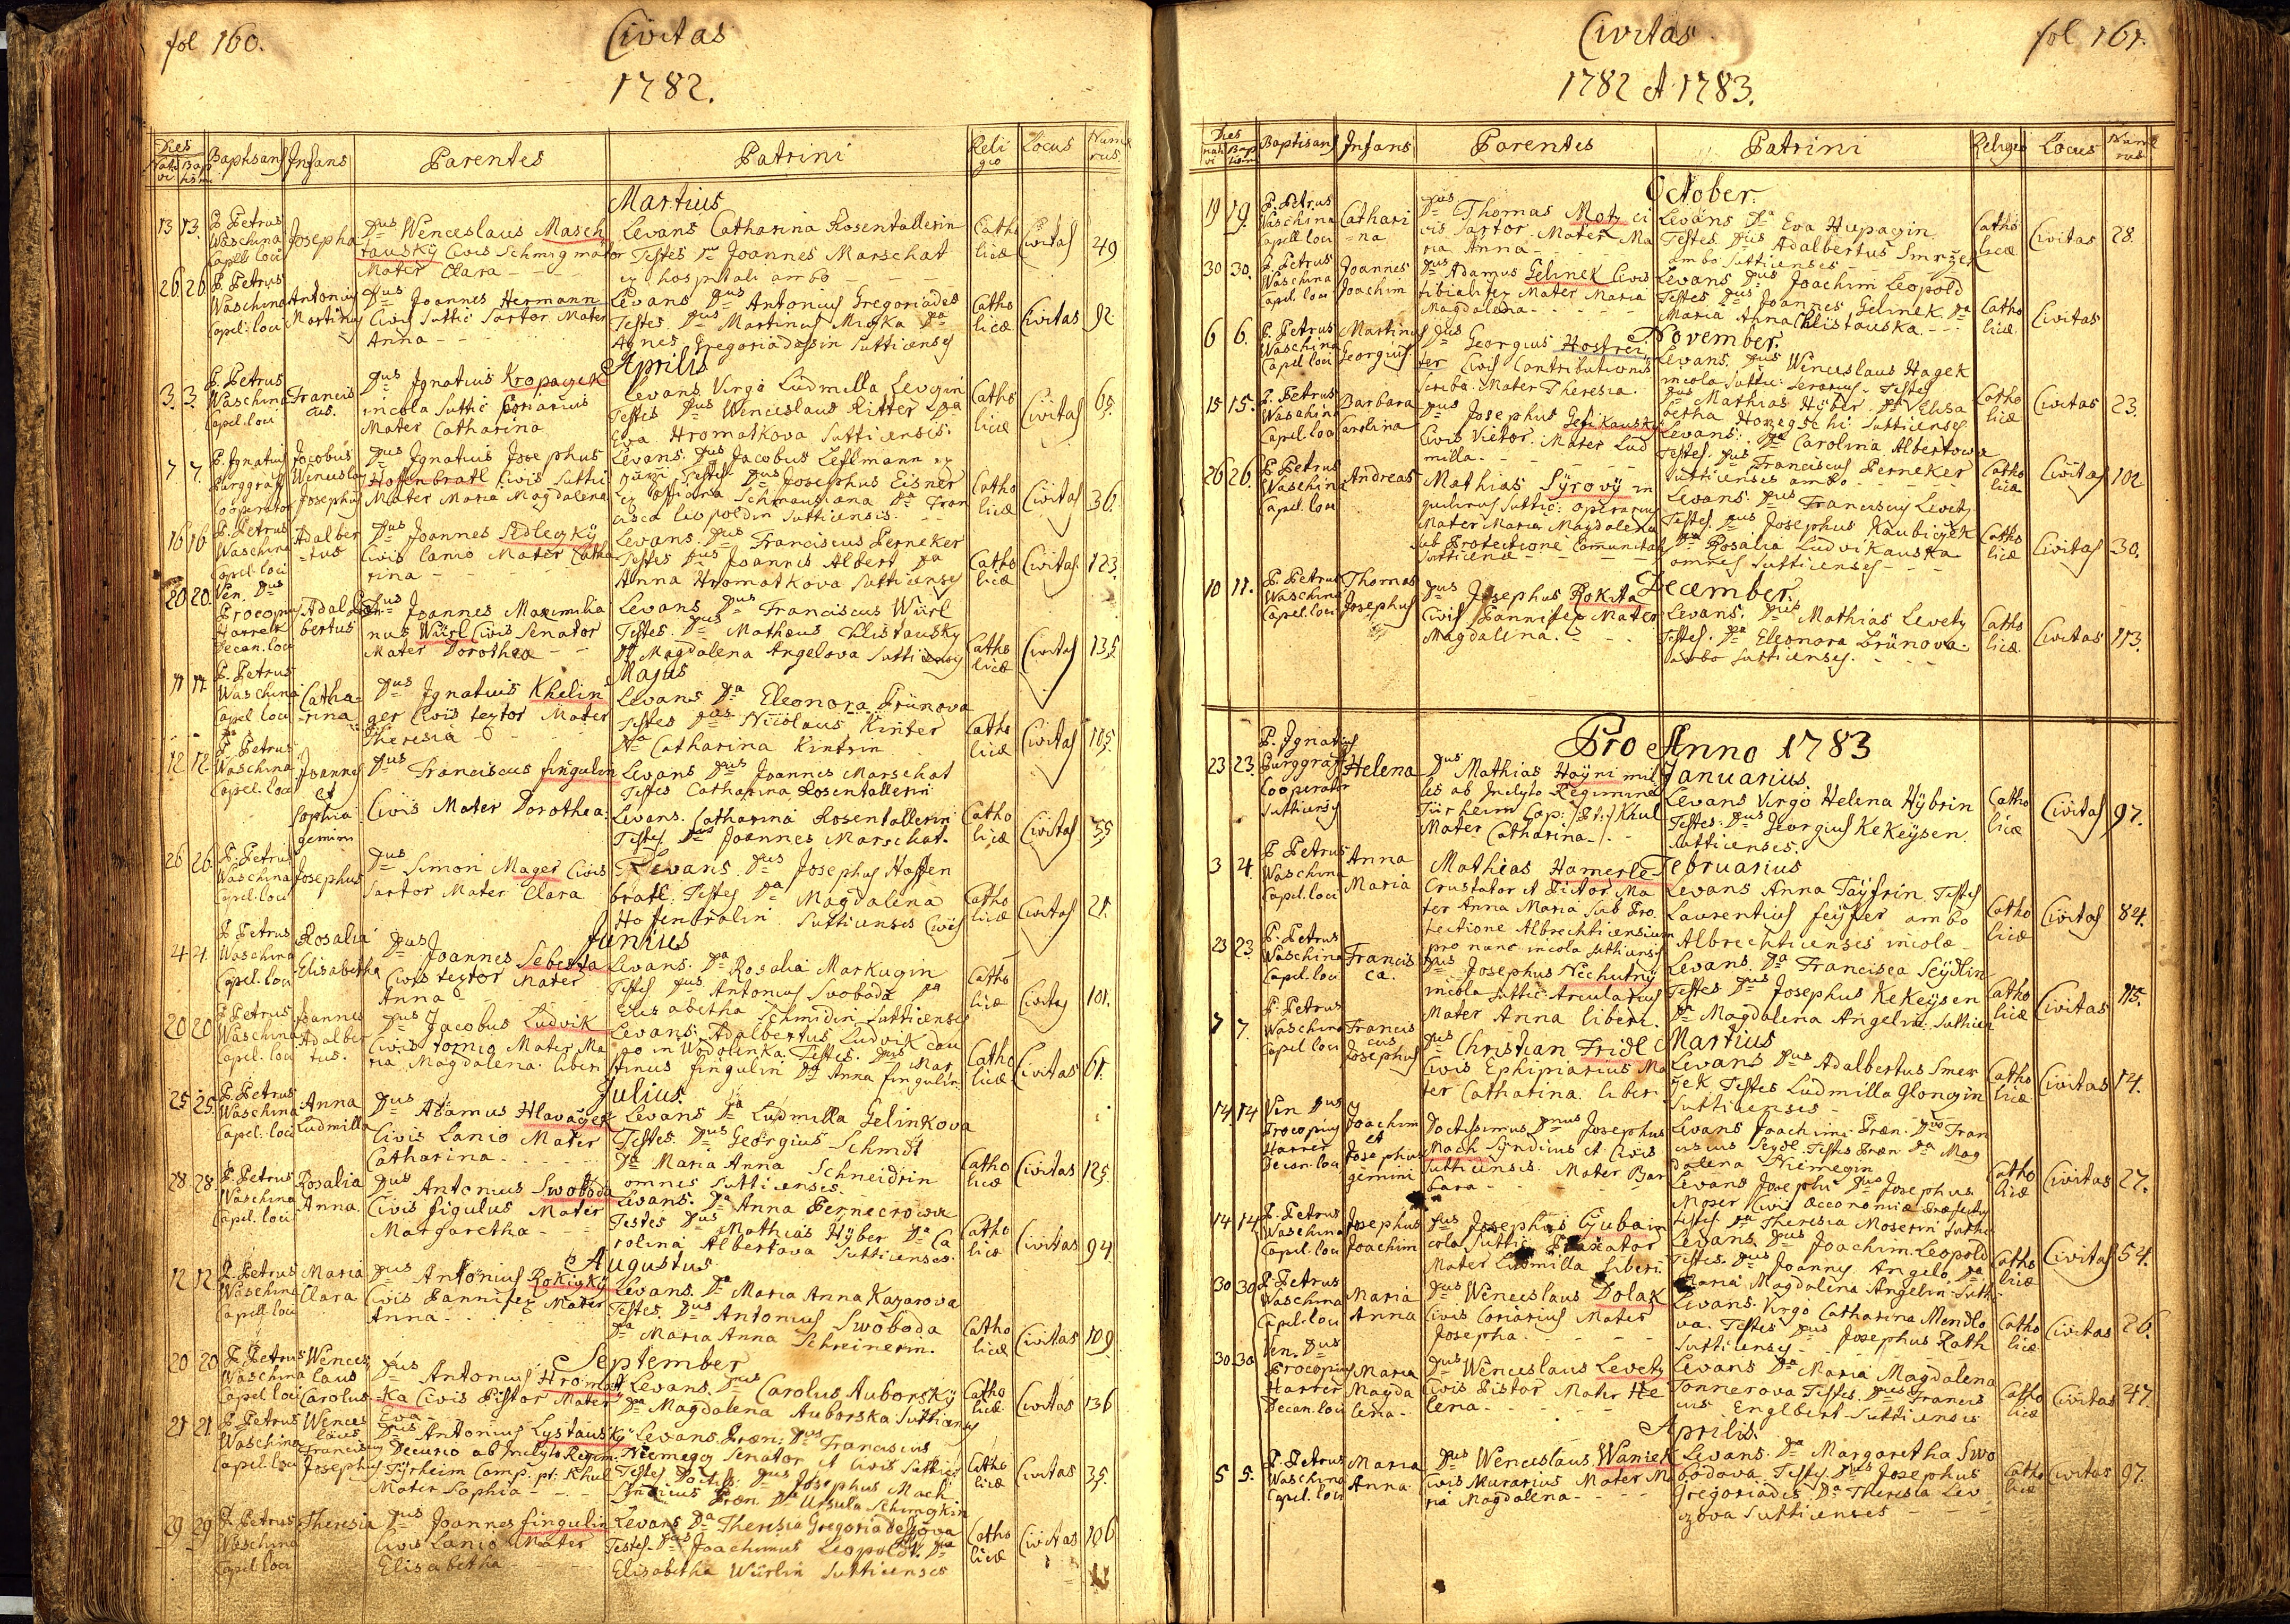 fol 160.
Civitas
1782.
Dies
Nati
vi
Bap
tismi
Baptisans
Infans
Parentes
Patrini
Reli
gio
Locus
Nume
rus
Martius
13 13.
P. Petrus
Waschina
Capell. loci
Josepha
Dus Wenceslaus Masch
tausky Civis Schmigmator
Mater Clara
Levans Catharina Rosentallerin
Testes Dus Joannes Marschat
ex hospitali ambo
Catho
licæ
Civitas
49
26. 26.
P. Petrus
Waschina
Capel: loci
Antonius
Martinus
Dus Joannes Hermann
Civis Suttic Sartor Mater
Anna
Levans Dus Antonius Gregoriades
Testes. Dus Martinus Miska Da
Agnes Gregoriadessin Sutticenses
Catho
licæ
Civitas
92
Aprilis
3. 3.
P. Petrus
Waschina
Capel. loci
Francis
cus.
Dus Ignatius Kropaczek
incola Suttic Coriarius
Mater Catharina
Levans Virgo Ludmilla Levczin
Testes Dus Wenceslaus Ritter Da
Eva Hromatkova Sutticensis.
Catho
licæ
Civitas
65
7 7.
P. Ignatius
Burggraff
Cooperator
Jacobus
Wenceslaus
Josephus
Dus Ignatius Josephus
Hoffenbratl Civis Sutti
Mater Maria Magdalena
Levans. Dus Jacobus Leflmann ex
Testes Dus Josephus Eisner
ex officiana Schmausiana Da Fran
cisca Leopoldin Sutticensis.
Catho
licæ
Civitas
36.
16 16
P. Petrus
Waschina
Capel. loci
Adalber
-tus
Dus Joannes Sedleczky
Civis Lanio Mater Catha
rina
Levans. Dus Franciscus Perneker
Testes Dus Joannes Albert Da
Anna Hromatkova Sutticenses
Catho
licæ
Civitas
123.
20 20.
Ven. Dus
Procopius
Harrer
Decan. loci
Adal
bertus
Dus Joannes Maximilia
nus Würl Civis Senator
Mater Dorothea
Levans Dus Franciscus Würl
Testes. Dus Mathæus Chlistausky
Da Magdalena Angelova Sutticenses
Catho
licæ
Civitas
135
Majus
11 11.
P. Petrus
Waschina
Capel. loci
Catha-
rina
Dus Ignatius Khelin
ger Civis textor Mater
Theresia
Levans Da Eleonora Grünova
Testes Dus Nicolaus Kinter
Da Catharina Kintrin
Catho
licæ
Civitas
105
12 12.
P. Petrus
Waschina
Capel. loci
Joannes
et
Sophia
gemini
Dus Franciscus Singulin
Civis Mater Dorothea.
Levans Dus Joannes Marschat
Testes Catharina Rosentallerin
Levans. Catharina Rosentallerin
Testes Dus Joannes Marschat.
Catho
licæ
Civitas
55
26 26
P. Petrus
Waschina
Capel. loci
Josephus
Dus Simon Mager Civis
Sartor Mater Clara
Levans. Dus Josephus Hoffen
bratl. Testes Da Magdalena
Hofenbralin Sutticenses Cives
Catho
licæ
Civitas
21.
Junius
4 4.
P. Petrus
Waschina
Capel. loci
Rosalia
Elisabetha
Dus Joannes Sebesta
Civis textor Mater
Anna
Levans. Da Rosalia Markugin
Testes Dus Antonius Svoboda Da
Elisabetha Schmidin Sutticenses
Catho
licæ
Civitas
101.
20 20
P. Petrus
Waschina
Capel. loci
Joannes
Adalber
tus.
Dus Jacobus Ludvik
Civis tornio Mater Ma
ria Magdalena. liberi
Levans. Adalbertus Ludvik cau
po in Wodolenka. Testes. Dus Mar
tinus Singulin Da Anna Singulin.
Catho
licæ
Civitas
61.
Julius.
25 25
P. Petrus
Waschina
Capel. loci
Anna
Ludmilla
Dus Adamus Hlavaczek
Civis Lanio Mater
Catharina
Levans Da Ludmilla Gelinkova
Testes. Dus Georgius Schmidt
Da Maria Anna Schneidrin
omnes Sutticenses.
Catho
licæ
Civitas
125.
28 28
P. Petrus
Waschina
Capel. loci
Rosalia
Anna
Dus Antonius Swoboda
Civis figulus Mater
Margaretha
Levans. Da Anna Pernecrowa
Testes Dus Mathias Hyber Da Ca
rolina Albertova Sutticenses.
Catho
licæ
Civitas
94.
Augustus
12 12
P. Petrus
Waschina
Capell. loci
Maria
Clara
Dus Antonius Rokiczky
Civis Pannifex Mater
Anna
Levans. Da Maria Anna Kazarova
Testes. Dus Antonius Swoboda
Da Maria Anna Schreinerin.
Catho
licæ
Civitas
109
September
20 20
P. Petrus
Waschina
Capel loci
Wences
laus
Carolus
Dus Antonius Hromat
ka Civis Pistor Mater
Eva
Levans. Dus Carolus Auborsky
Da Magdalena Auborska Sutticenses
Catho
licæ
Civitas
136
21 21
P. Petrus
Waschina
Capel. loci
Wences
laus
Franciscus
Josephus
Dus Antonius Lystausky
Decurio ab Inclyto Regim.
Tyrheim Comp. pt. Khul
Mater Sophia
Levans. Præn. Dus Franciscus
Niemeczy Senator et Civis Suttic
Testes Doctiss. Dus Josephus Mach
Sindicus Præn Da Ursula Schimgkin
Catho
licæ
Civitas
35.
29 29
P. Petrus
Waschina
Capel loci
Theresia
Dus Joannes Singulin
Civis Lanio Mater
Elisabetha
Levans Da Theresia Gregoriadessova
Testes. Dus Joachimus Leopoldt. Da
Elisabetha Würlin Sutticenses
Catho
licæ
Civitas
106
Civitas
fol 161.
1782 et 1783.
Dies
nati
vi
Bap
tism
Baptisans
Infans
Parentes
Patrini
Religio
Locus
Nume
rus
October.
19 19.
P. Petrus
Waschina
Capell loci
Cathari
=na
Dus Thomas Motz ci
vis Sartor Mater Ma
ria Anna
Levans Da Eva Hupaczin
Testes. Dus Adalbertus Smržek
ambo Sutticenses
Catho
licæ
Civitas
28.
30 30.
P. Petrus
Waschina
Capel. loci
Joannes
Joachim
Dus Adamus Gelinek Civis
tibialifex Mater Maria
Magdalena
Levans Dus Joachim Leopold
Testes Dus Joannes Gelinek. Da
Maria Anna Chlistauska.
Catho
licæ
Civitas
November.
6 6.
P. Petrus
Waschina
Capel. loci
Martinus
Georgius
Dus Georgius Hostrei
ter Civis Contributionis
Scriba. Mater Theresia.
Levans. Dus Wenceslaus Hagek
incola Suttic: Serarius. Testes
Dus Mathias Hyber. Da Elisa
betha Horzegschi Sutticenses
Catho
licæ
Civitas
23.
15 15.
P. Petrus
Waschina
Capel. loci
Barbara
Carolina
Dus Josephus Gesikausky
Civis Vietor. Mater Lud
milla
Levans. Da Carolina Albertowa
Testes. Dus Franciscus Perneker
Sutticenses ambo
Catho
licæ
Civitas
102
26 26.
P. Petrus
Waschina
Capel. loci
Andreas
Mathias Syrovy in
quilinus Suttic: operarius
Mater Maria Magdalena
sub Protectione Comunitatis
Sutticena
Levans. Dus Franciscus Levetz
Testes. Dus Josephus Kaubiczek
Da Rosalia Ludvikauska
omnes Sutticenses
Catho
licæ
Civitas
30.
December.
10 11.
P. Petrus
Waschina
Capel. loci
Thomas
Josephus
Dus Josephus Rokita
Civis Pannifex Mater
Magdalena.
Levans. Dus Mathias Levetz
Testes. Da Eleonora Brünova.
ambo Sutticenses.
Catho
licæ
Civitas
113.
Pro Anno 1783
Januarius.
23 23.
P. Ignatius
Burggraff
Cooperator
Sutticensis
Helena
Dus Mathias Hayni mil
les ab Inclyto Regimine
Türheim Cap: Khul
Mater Catharina
Levans Virgo Helena Hybrin
Testes. Dus Georgius Kekeysen
Sutticenses.
Catho
licæ
Civitas
97.
Februarius
3 4.
P. Petrus
Waschina
Capel. loci
Anna
Maria
Mathias Hamerle
Crustator et Pictor. Ma
ter Anna Maria Sub Pro
tectione Albrechticensium
pro nunc incola Sutticensis
Levans Anna Tayfrin Testes
Laurentius Seyfer ambo
Albrechticenses incolæ
Catho
licæ
Civitas
84.
23 23.
P. Petrus
Waschina
Capel. loci
Francis
ca.
Dus Josephus Nechutny
incola Suttic: Arcularius
Mater Anna liberi.
Levans. Da Francisca Seydlin
Testes Dus Josephus Kekeysen
Da Magdalena Angelin. Sutticen
Catho
licæ
Civitas
115.
Martius
7 7.
P. Petrus
Waschina
Capel loci
Francis
cus
Josephus
Dus Christian Fridl
Civis Ephipiarius Ma
ter Catharina. liberi.
Levans Dus Adalbertus Smer
zek Testes Ludmilla Glongin
Sutticenses
Catho
licæ
Civitas
14.
14 14
Ven Dus
Procopius
Harrer
Decan. loci
Joachim
et
Josephus
gemini
Doctissimus Dnus Josephus
Mach Syndicus et Civis
Sutticensis. Mater Bar
bara
Levans Joachimi. Præn. Dus Fran
ciscus Seydl Testes Præn Da Mag
dalena Niemegin
Levans Josephi Dus Josephus
Moser Civis Oeconomiæ Præfectus
Testes Da Theresia Moserin Suttic
Catho
licæ
Civitas
27.
14 14
P. Petrus
Waschina
Capel. loci
Josephus
Joachim
Dus Josephus Cjubain
cola Suttic
Mater Ludmilla liberi.
Levans. Dus Joachim Leopold
Testes. Dus Joannes Angelo, Da
Maria Magdalena Angelin Suttic
Catho
licæ
Civitas
54.
30 30
P. Petrus
Waschina
Capel. loci
Maria
Anna
Dus Wenceslaus Dolak
Civis Coriarius Mater
Josepha.
Levans. Virgo Catharina Mendlo
va. Testes Dus Josephus Rath
Sutticenses
Catho
licæ
Civitas
26.
30 30
Ven. Dus
Procopius
Harrer
Decan. loci
Maria
Magda
lena
Dus Wenceslaus Levetz
Civis Pistor Mater He
lena
Levans Da Maria Magdalena
Tonnerova Testes. Dus Francis
cus Englbert Sutticenses
Catho
licæ
Civitas
47.
Aprilis.
5 5.
P. Petrus
Waschina
Capel. loci
Maria
Anna
Dus Wenceslaus Waniek
Civis Murarius Mater Ma
ria Magdalena
Levans. Da Margaretha Swo
bodova. Testes. Dus Josephus
Gregoriades. Da Theresia Lev
czova Sutticenses
Catho
licæ
Civitas
97.